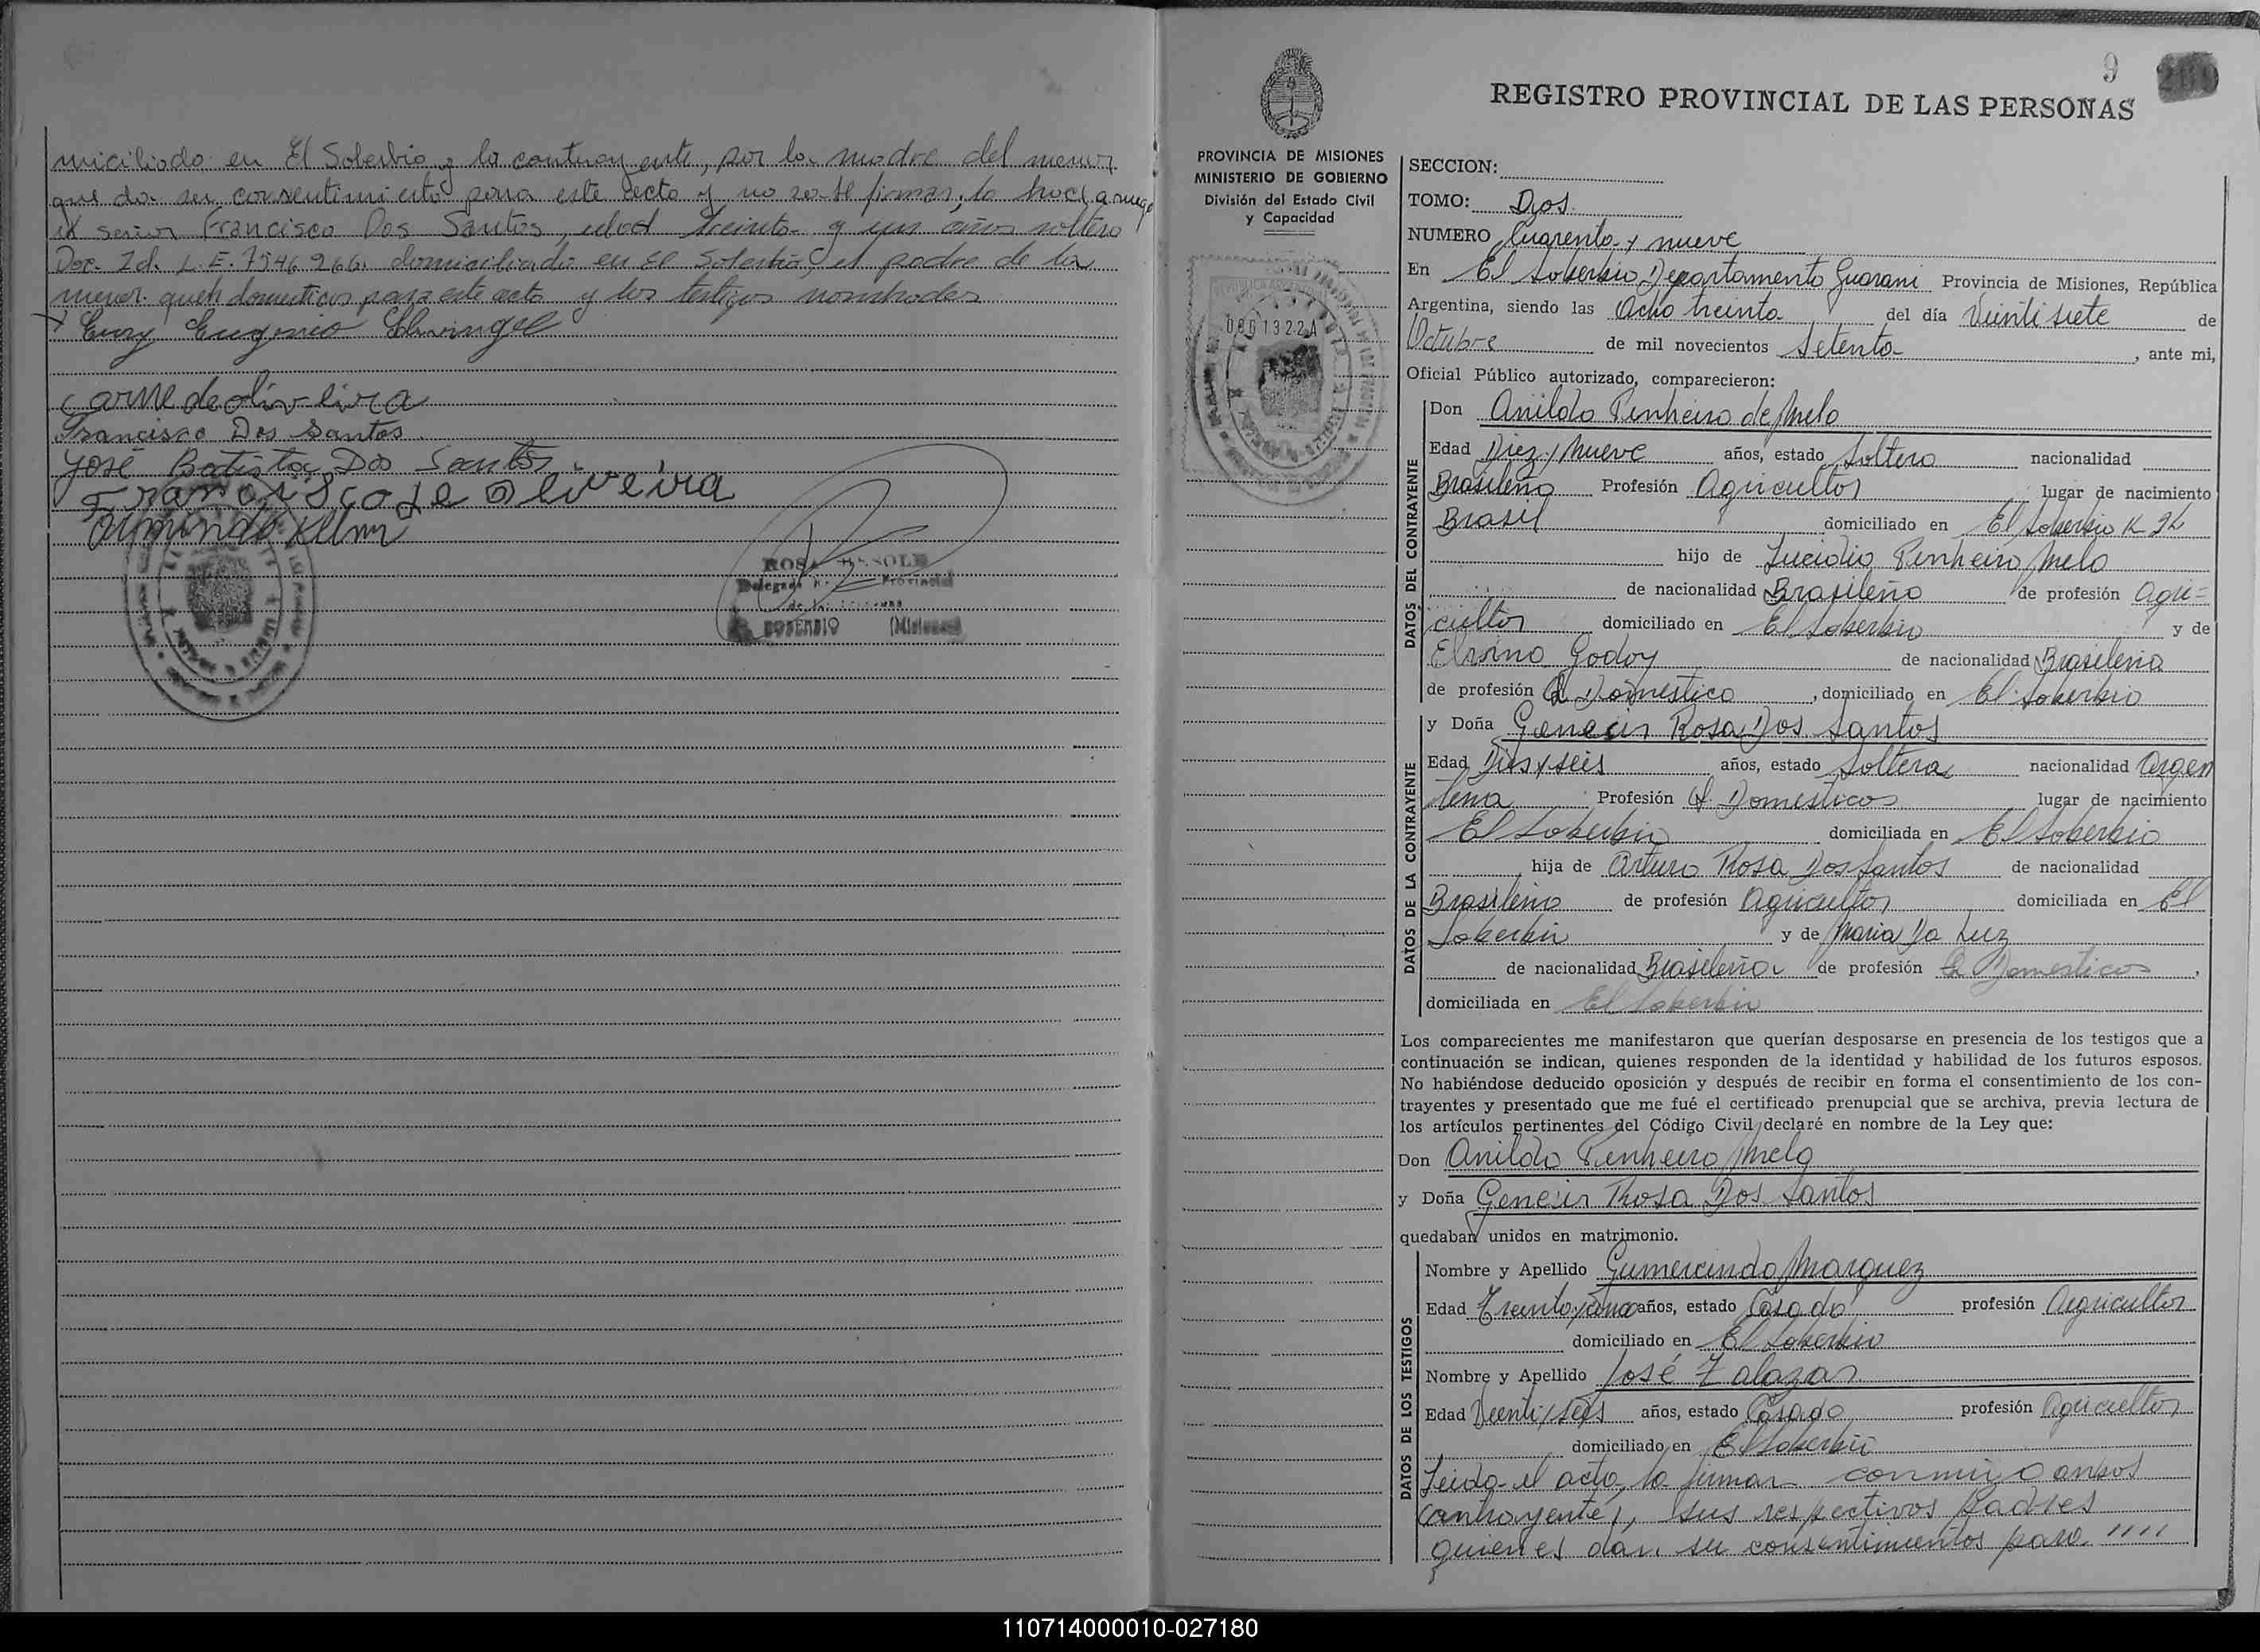 miciliado en El Soberbio y la contrayente, por la madre del menor
que da su consentimiento para este acto y no sabe firmar, lo hace a ruego
el señor Francisco Dos Santos, edad treinta y un años soltero
Doc. Id. L.E. 7546266 domiciliado en El Soberbio, el padre de la
menor para este acto y los testigos nombrados
Eugenio
carme de oliveira
Francisco Dos Santos
José Batista Dos Santos
Francisco de Oliveira
9
REGISTRO PROVINCIAL DE LAS PERSONAS
PROVINCIA DE MISIONES
MINISTERIO DE GOBIERNO
División del Estado Civil
y Capacidad
0001322A
SECCION:
TOMO: Dos
NUMERO Cuarenta y nueve
En El Soberbio, Departamento Guarani Provincia de Misiones, República
Argentina, siendo las Ocho treinta del día Veintisiete de
Octubre de mil novecientos Setenta, ante mi,
Oficial Público autorizado, comparecieron:
DATOS DEL CONTRAYENTE
Don Anildo Pinheiro de Melo
Edad Diez y Nueve años, estado Soltero nacionalidad
Brasileño Profesión Agricultor lugar de nacimiento
Brasil domiciliado en El Soberbio K
hijo de Lucidio Pinheiro Melo
de nacionalidad Brasileño de profesión Agri=
cultor domiciliado en El Soberbio y de
Godoy de nacionalidad Brasileña
de profesión Q. Domestico, domiciliado en El Soberbio
DATOS DE LA CONTRAYENTE
y Doña Genecir Rosa Dos Santos
Edad Dies y seis años, estado Soltera nacionalidad Argen
tina Profesión Q. Domesticos lugar de nacimiento
El Soberbio domiciliada en El Soberbio
hija de Arturo Rosa Dos Santos de nacionalidad
Brasileño de profesión Agricultor domiciliada en El
Soberbio y de Maria Da Luz
de nacionalidad Brasileña de profesión Q. Domesticos,
domiciliada en El Soberbio
Los comparecientes me manifestaron que querían desposarse en presencia de los testigos que a
continuación se indican, quienes responden de la identidad y habilidad de los futuros esposos.
No habiéndose deducido oposición y después de recibir en forma el consentimiento de los con-
trayentes y presentado que me fué el certificado prenupcial que se archiva, previa lectura de
los artículos pertinentes del Código Civil declaré en nombre de la Ley que:
Don Anildo Pinheiro Melo
y Doña Genecir Rosa Dos Santos
quedaban unidos en matrimonio.
DATOS DE LOS TESTIGOS
Nombre y Apellido Gumercindo Marquez
Edad Treinta y años, estado Casado profesión Agricultor
domiciliado en El Soberbio
Nombre y Apellido José Zalazar
Edad Veinti y seis años, estado Casado profesión Agricultor
domiciliado en El Soberbio
Leida el acta, la firman conmigo ambos
contrayentes, sus respectivos padres
quienes dan su consentimientos para """
110714000010-027180